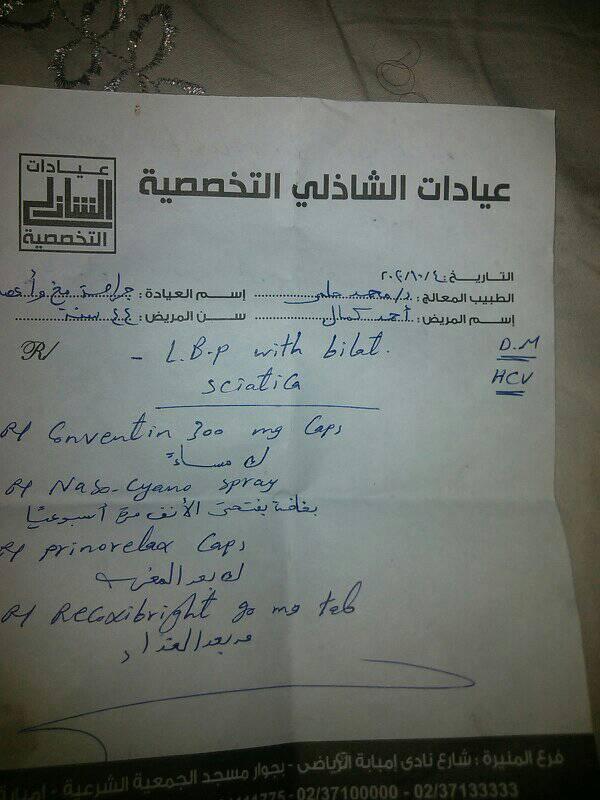 عيادات
الشاذلي
التخصصية
عيادات الشاذلي التخصصية
التاريخ: ٢٠٢/١٠/٤
الطبيب المعالج: د/محمد حلمى إسم العيادة: جراحة مخ وأعصا
إسم المريض: أحمد كمال سن المريض: ٤٤ سنة
R/ - L.B.P with bilat. D.M
sciatica HCV
R/ Conventin 300 mg Caps
ك مساءً
R/ Naso-cyano spray
بخاخة بفتحتى الأنف مرة أسبوعياً
R/ prinorelax Caps
ك بعد المغرب
R/ Recoxibright 90 mg tab
بعد الغداء
فرع المنيرة : شارع نادى إمبابة الرياضى - بجوار مسجد الجمعية الشرعية - إمبابة
02/37100000 - 02/37133333